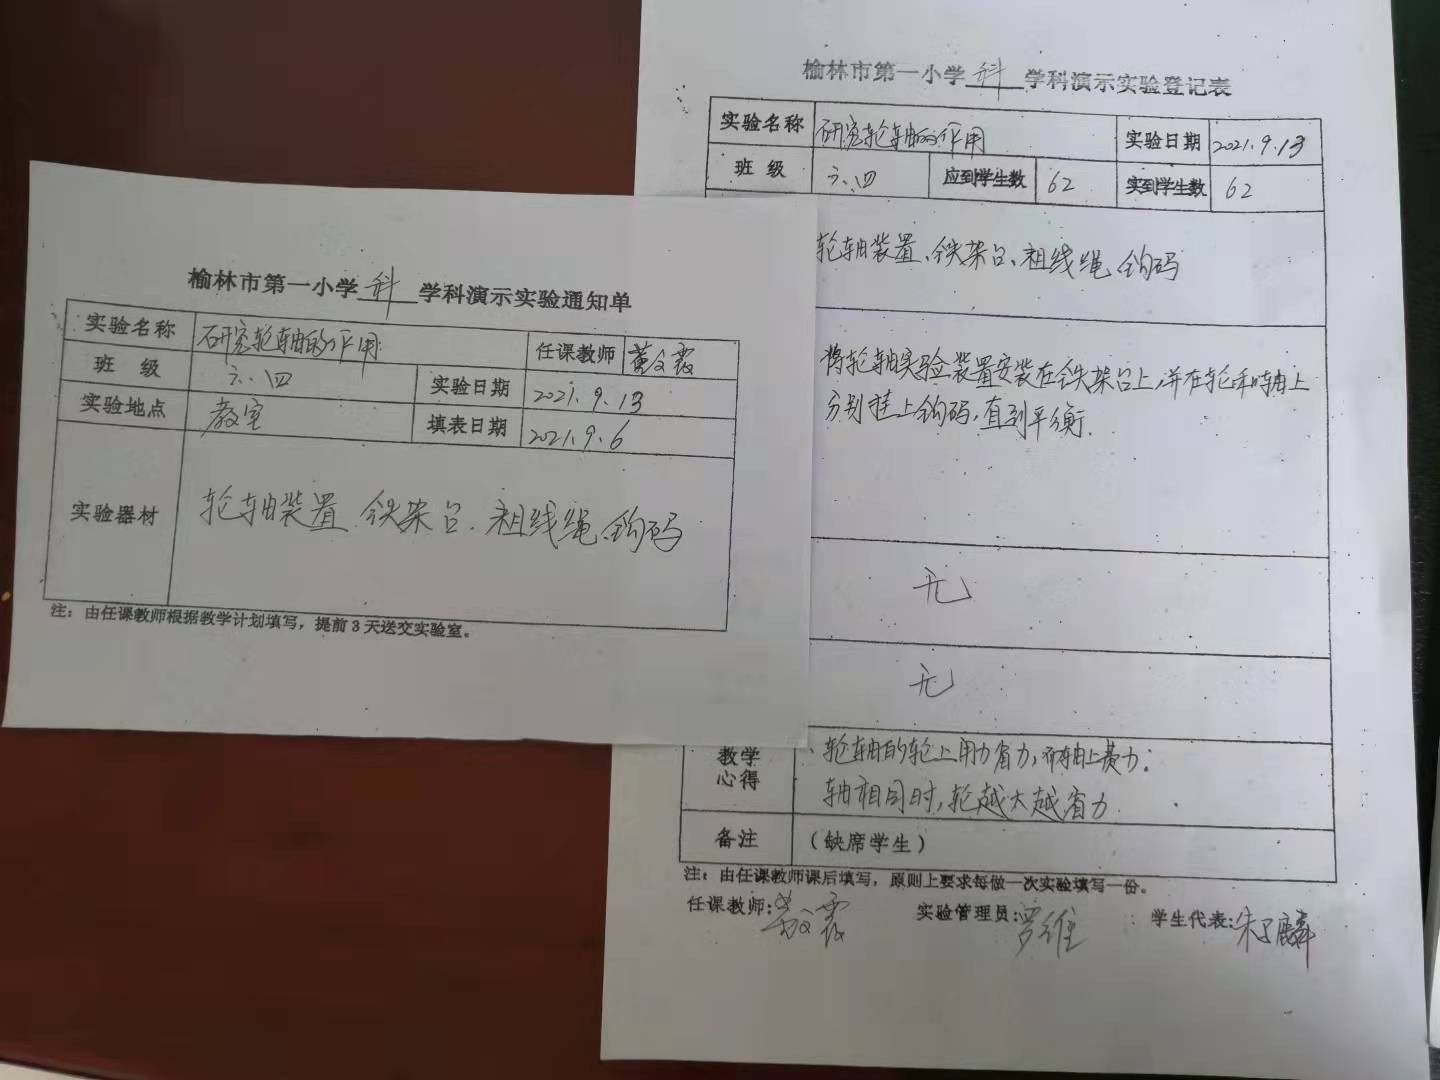 榆林市第一小学科学科演示实验通知单
实验名称 研究轮轴的作用 任课教师 黄文霞
班 级 六、四 实验日期 2021.9.13
实验地点 教室 填表日期 2021.9.6
实验器材 轮轴装置、铁架台、祖线绳、钩码
注：由任课教师根据教学计划填写，提前3天送交实验室。
榆林市第一小学科学科演示实验登记表
实验名称 研究轮轴的作用 实验日期 2021.9.13
班 级 六、四 应到学生数 62 实到学生数 62
轮轴装置、铁架台、祖线绳、钩码
将轮轴实验装置安装在铁架台上，并在轮和轴上
分别挂上钩码，直到平衡.
无
无
教学
心得
轮轴的轮上用力省力，而轴上费力；
轴相同时，轮越大越省力.
备注 （缺席学生）
注：由任课教师课后填写，原则上要求每做一次实验填写一份。
任课教师：黄文霞 实验管理员：罗维 学生代表：朱子麟